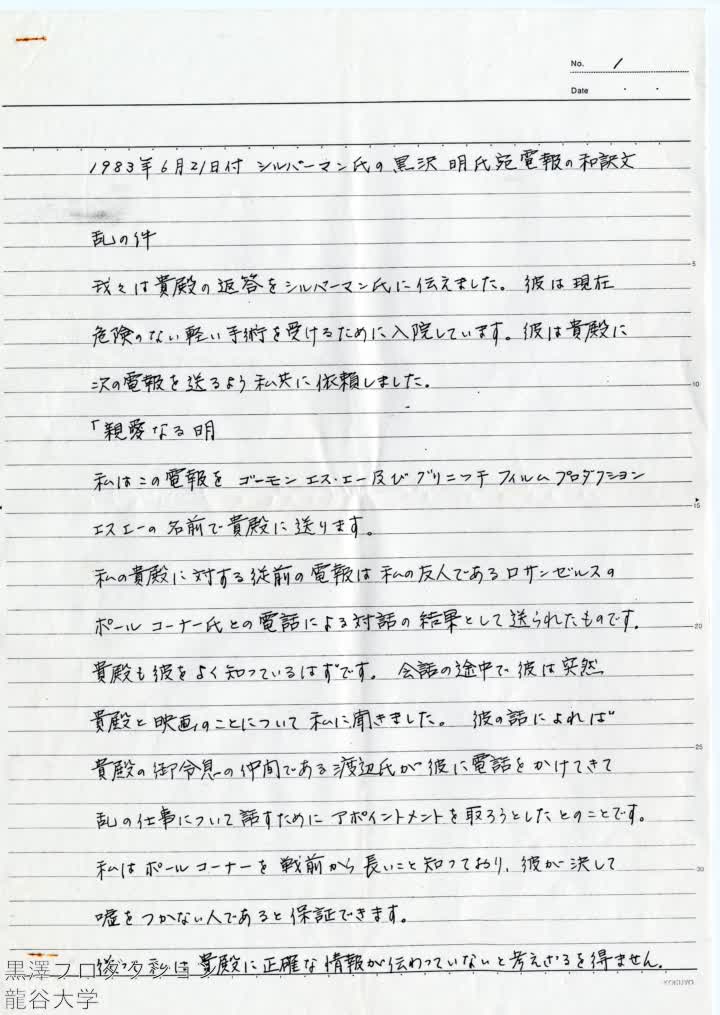 No. 1
Date ・ ・
1983年6月21日付 シルバーマン氏の黒沢 明氏宛電報の和訳文
乱の件
我々は貴殿の返答をシルバーマン氏に伝えました。彼は現在
危険のない軽い手術を受けるために入院しています。彼は貴殿に
次の電報を送るよう私共に依頼しました。
「親愛なる明
私はこの電報を ゴーモン エス・エー及び グリニッチ フィルム プロダクション
エスエーの名前で貴殿に送ります。
私の貴殿に対する従前の電報は私の友人であるロサンゼルスの
ポール コーナー氏との電話による対話の結果として送られたものです。
貴殿も彼をよく知っているはずです。会話の途中で彼は突然
貴殿と映画のことについて私に聞きました。彼の話によれば
貴殿の御令息の仲間である渡辺氏が彼に電話をかけてきて
乱の仕事について話すためにアポイントメントを取ろうとしたとのことです。
私はポールコーナーを戦前から長いこと知っており、彼が決して
嘘をつかない人であると保証できます。
従って私は貴殿に正確な情報が伝わっていないと考えざるを得ません。
5
10
15
20
25
30
KOKUYO
黒澤プロダクション
龍谷大学